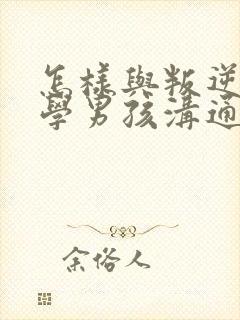 怎樣與叛逆
學男孩溝通
余俗人